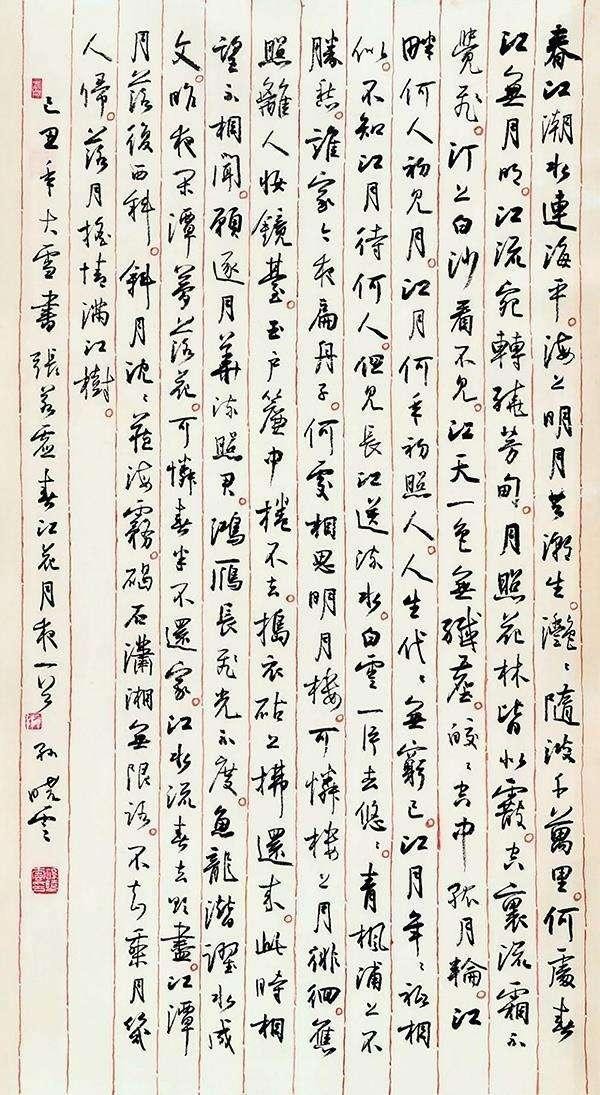 春江潮水連海平。海上明月共潮生。灩灩隨波千萬里。何處春
江無月明。江流宛轉繞芳甸。月照花林皆似霰。空裏流霜不
覺飛。汀上白沙看不見。江天一色無纖塵。皎皎空中孤月輪。江
畔何人初見月。江月何年初照人。人生代代無窮已。江月年年祗相
似。不知江月待何人。但見長江送流水。白雲一片去悠悠。青楓浦上不
勝愁。誰家今夜扁舟子。何處相思明月樓。可憐樓上月徘徊。應
照離人妝鏡臺。玉戶簾中捲不去。搗衣砧上拂還來。此時相
望不相聞。願逐月華流照君。鴻鴈長飛光不度。魚龍潛躍水成
文。昨夜閑潭夢落花。可憐春半不還家。江水流春去欲盡。江潭
月落復西斜。斜月沈沈藏海霧。碣石瀟湘無限路。不知乘月幾
人歸。落月搖情滿江樹。
己丑年大雪書 張若虛春江花月夜一首 孫曉雲